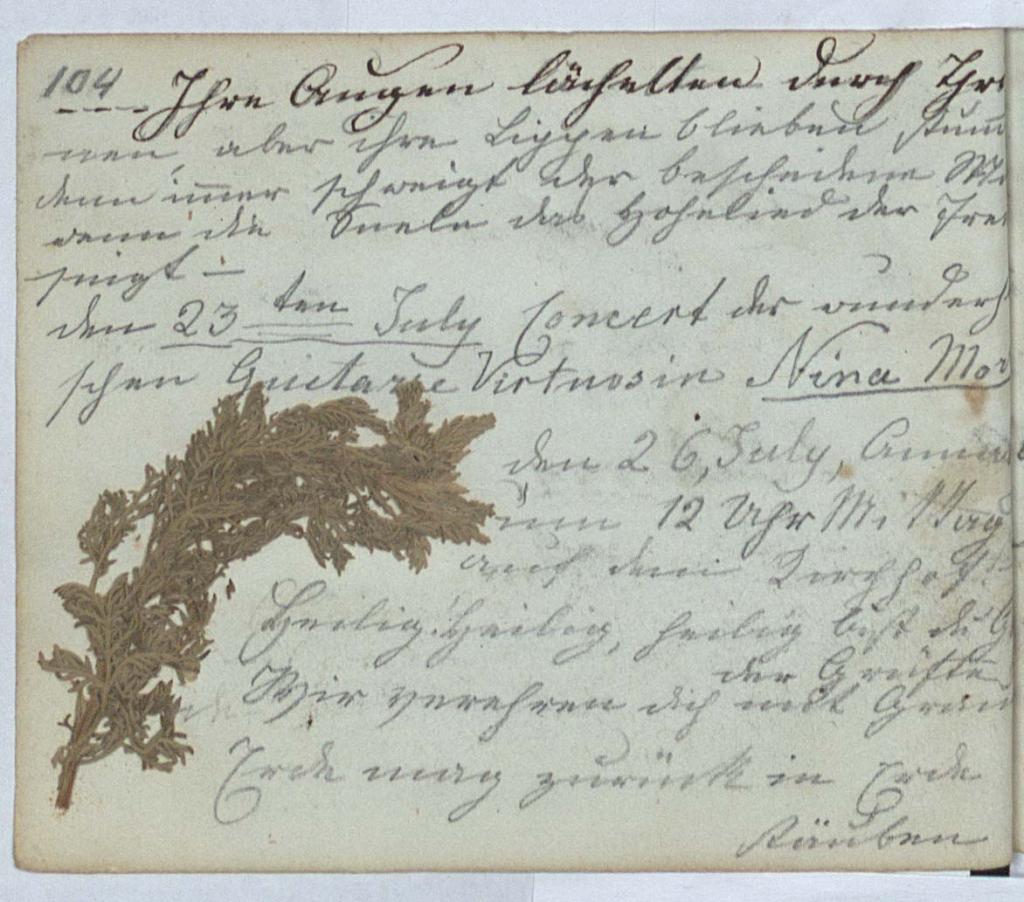 104
--- Ihre Augen lächelten durch Thr
nen, aber ihre Lippen blieben stum
denn immer schweigt der bescheidene
wenn die Seele das Hohelied der
singt –
den 23ten July Concert der wunderh
schen Guitarre Virtuosin Nina Mor
den 26, July,
um 12 Uhr Mittag
auf dem Kirchhof
Heilig! Heilig, heilig bist du G
der Grüfte
Wir verehren dich mit Grau
Erde mag zurück in Erde
stäuben